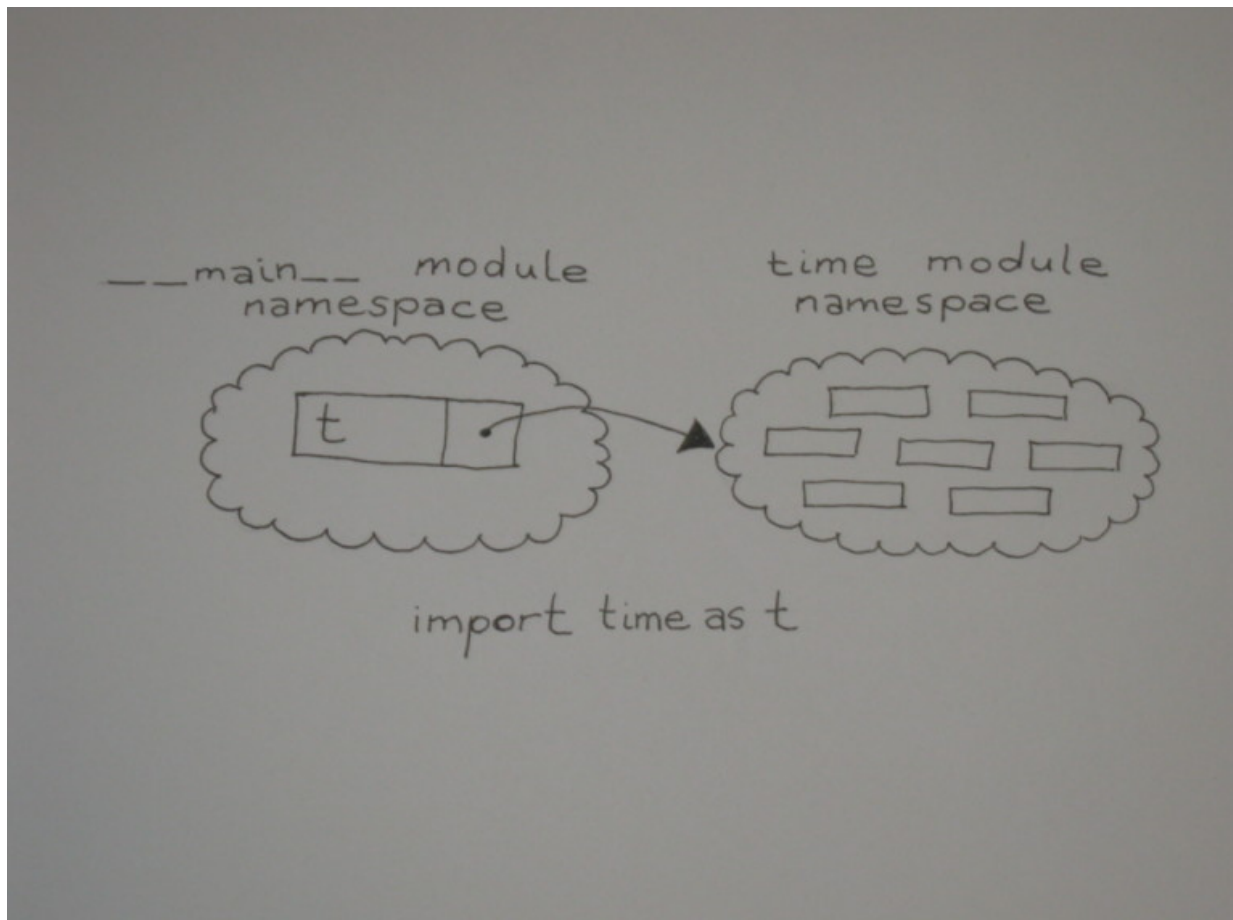 __main__ module
namespace
time module
namespace
t
import time as t